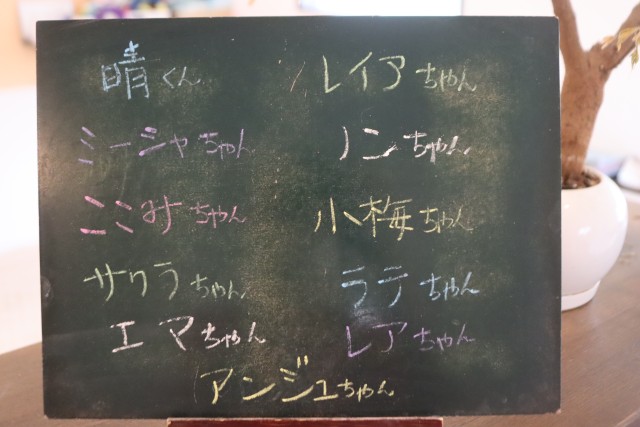 晴くん レイアちゃん
ミーシャちゃん ノンちゃん
ミミみちゃん 小梅ちゃん
サクラちゃん ラテちゃん
エマちゃん レアちゃん
アンジュちゃん